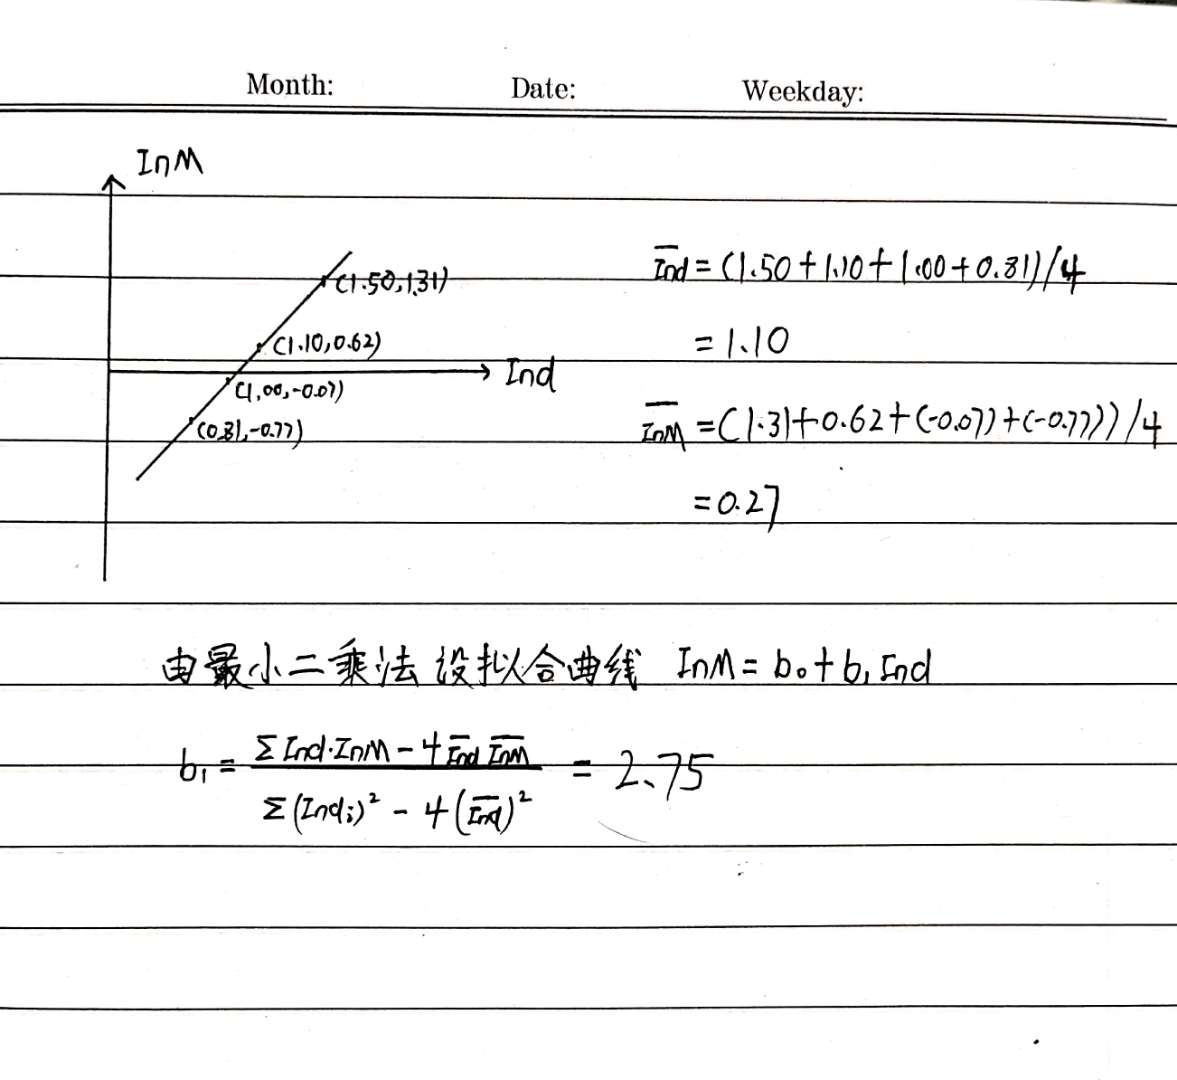 Month: Date: Weekday:
lnM
(1.50,1.31)
(1.10,0.62)
lnd
(1,00,-0.07)
(0.81,-0.77)
l̅n̅d̅ = (1.50+1.10+1.00+0.81)/4
= 1.10
l̅n̅M̅ = (1.31+0.62+(-0.07)+(-0.77))/4
= 0.27
由最小二乘法 设拟合曲线 lnM = b₀+b₁lnd
b₁ = (Σlnd·lnM - 4 l̅n̅d̅ l̅n̅M̅) / (Σ(lndᵢ)² - 4(l̅n̅d̅)²) = 2.75